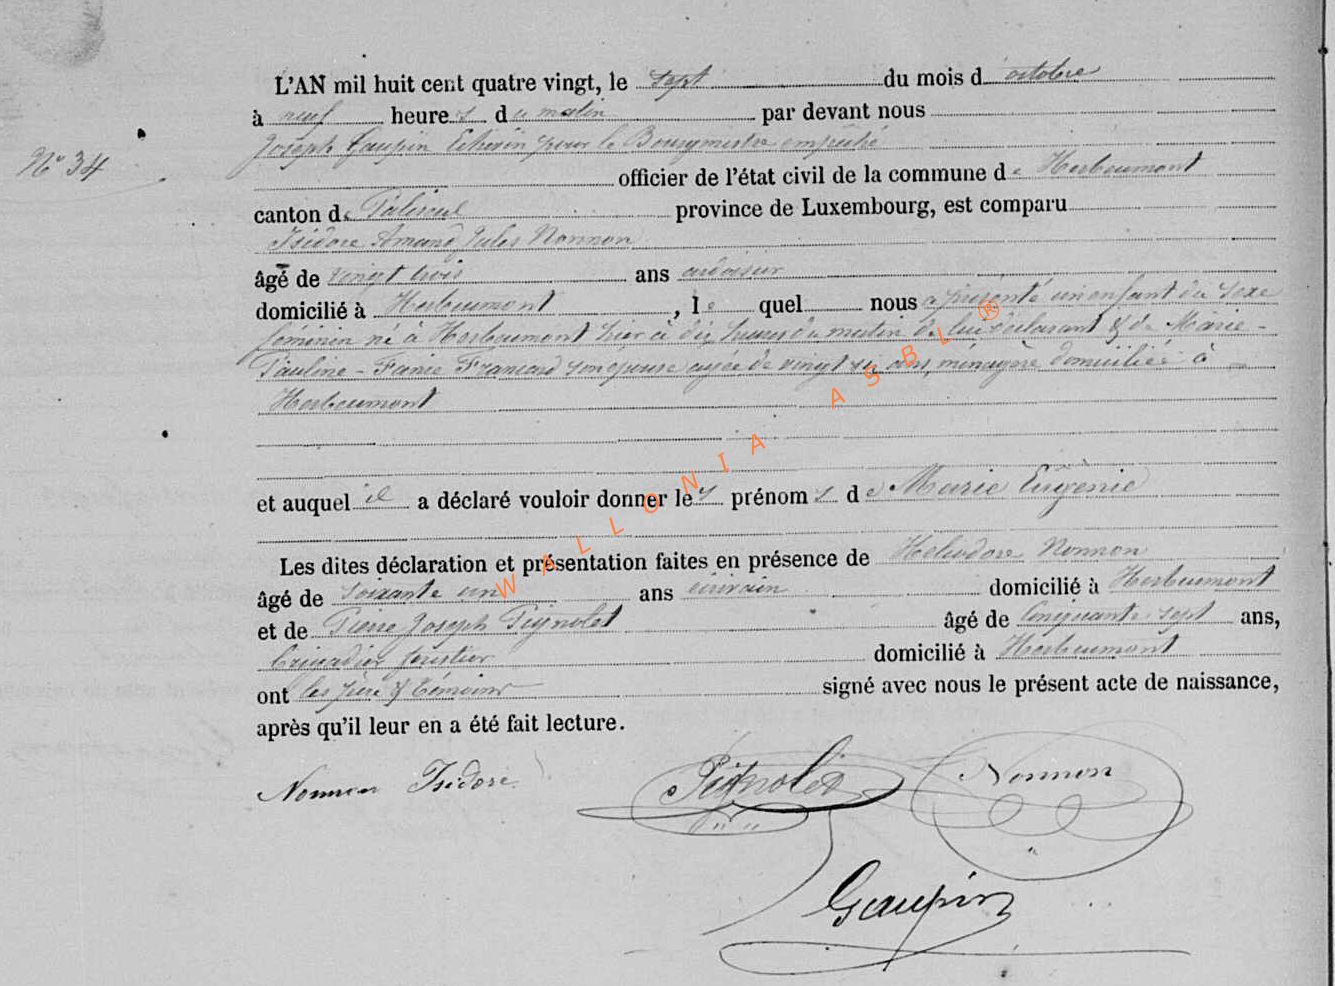 L'AN mil huit cent quatre vingt, le sept du mois d octobre
à neuf heure s du matin par devant nous
Joseph Gaupin Echevin pour le Bourgmestre empêché
N° 34
officier de l'état civil de la commune de Herbeumont
canton de Paliseul province de Luxembourg, est comparu
Isidore Amand Jules Nonnon
âgé de vingt trois ans ardoisier
domicilié à Herbeumont, le quel nous a présenté un enfant du sexe
féminin né à Herbeumont hier à dix heures du matin de lui déclarant & de Marie-
Pauline-Fanie Fransard son épouse agée de vingt six ans, ménagère domiciliée à
Herbeumont
et auquel il a déclaré vouloir donner les prénom s de Marie Eugénie
Les dites déclaration et présentation faites en présence de Heliodore Nonnon
âgé de soixante un ans écrivain domicilié à Herbeumont
et de Pierre Joseph Pignolet âgé de Cinquante sept ans,
brigadier forestier domicilié à Herbeumont
ont les père & témoins signé avec nous le présent acte de naissance,
après qu'il leur en a été fait lecture.
Nonnon Isidore Pignolet Nonnon
Gaupin
WALLONIA ASBL ®